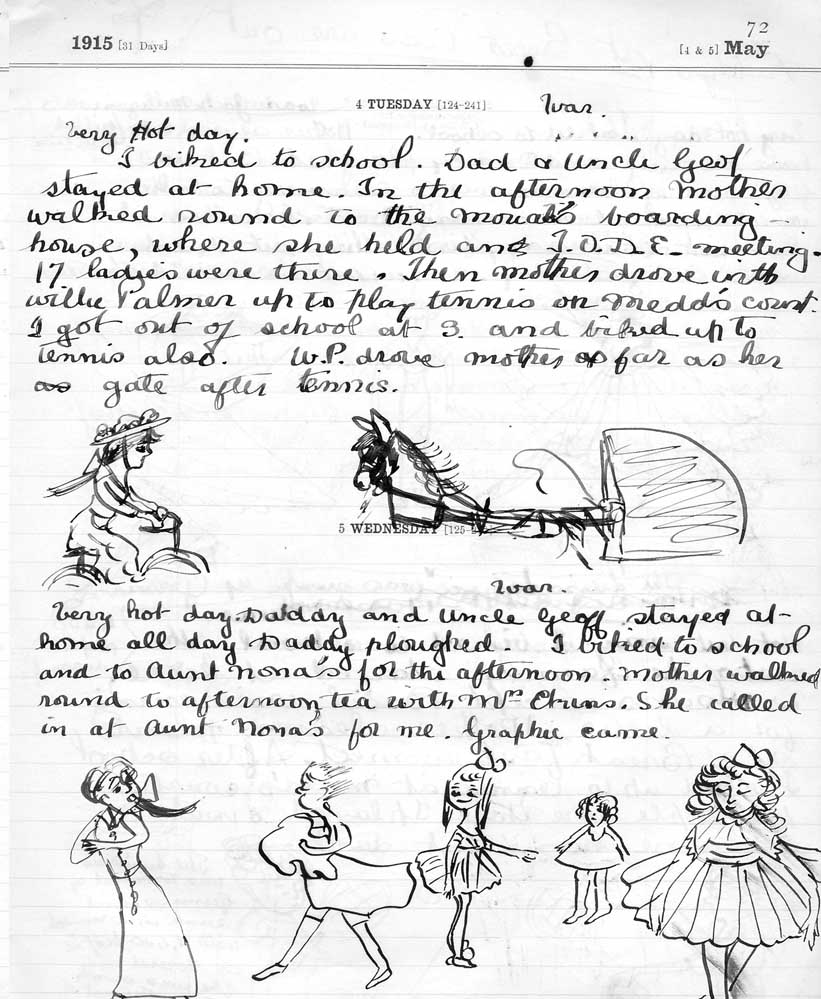 72
1915 [31 Days] [4 & 5] May
4 TUESDAY [124-241] War.
Very Hot day.
I biked to school. Dad & Uncle Geof
stayed at home. In the afternoon Mother
walked round to the Mouat's boarding-
house, where she held an I.O.D.E. meeting.
17 ladies were there. Then mother drove with
Willie Palmer up to play tennis on Medd's court.
I got out of school at 3. and biked up to
tennis also. W.P. drove mother as far as her
as gate after tennis.
5 WEDNESDAY [125-
War.
Very hot day. Daddy and Uncle Geoff stayed at
home all day Daddy ploughed. I biked to school
and to Aunt Nona's for the afternoon. Mother walked
round to afternoon tea with Mrs. She called
in at Aunt Nona's for me. Graphic came.